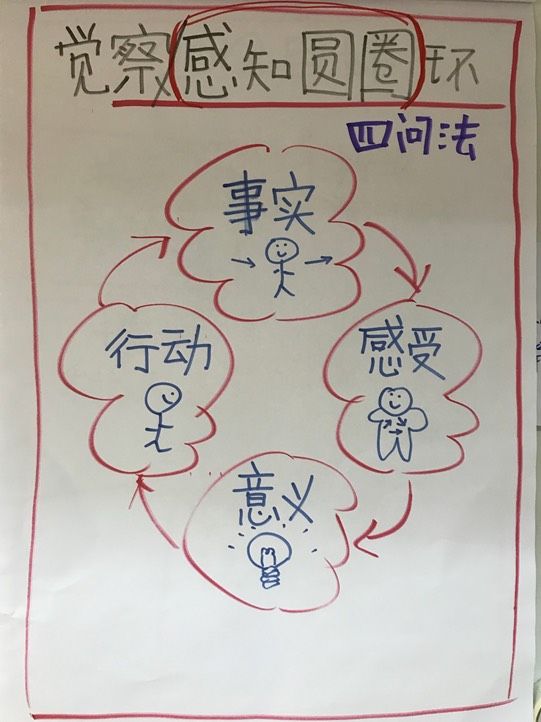 觉察感知圆圈环
四问法
事实
行动
感受
意义